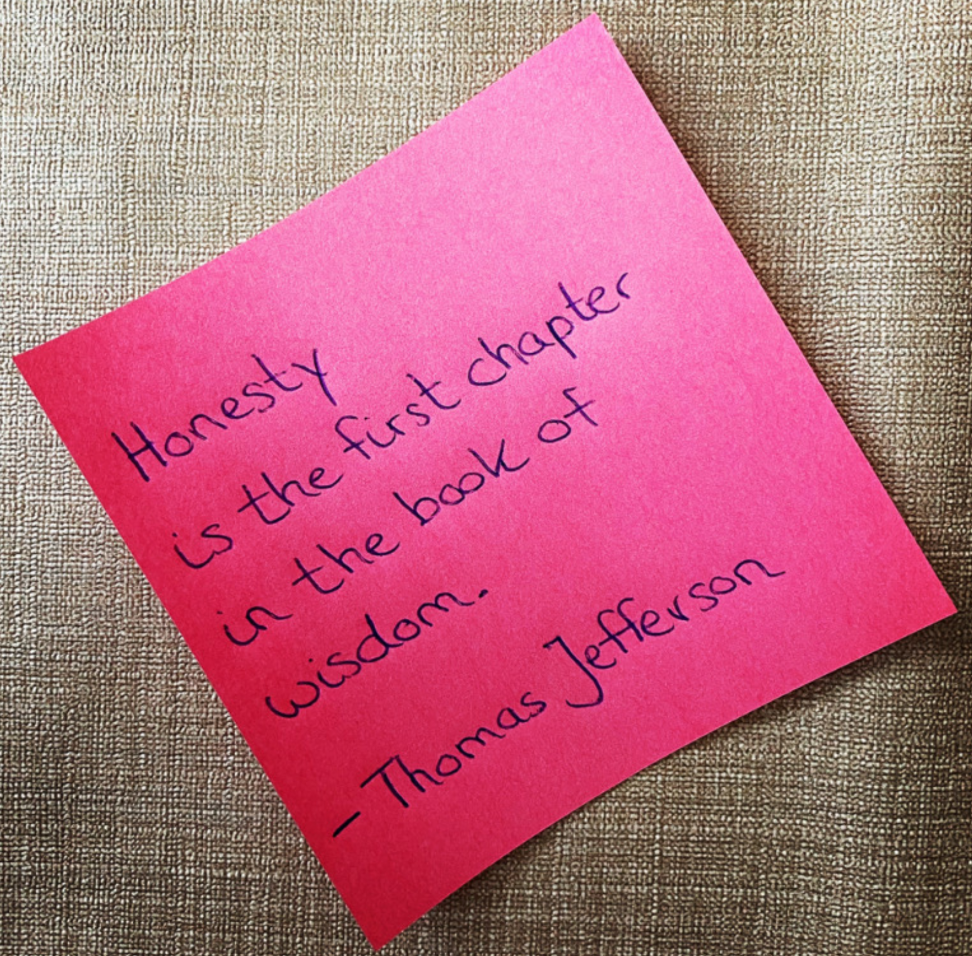 Honesty
is the first chapter
in the book of
wisdom.
- Thomas Jefferson